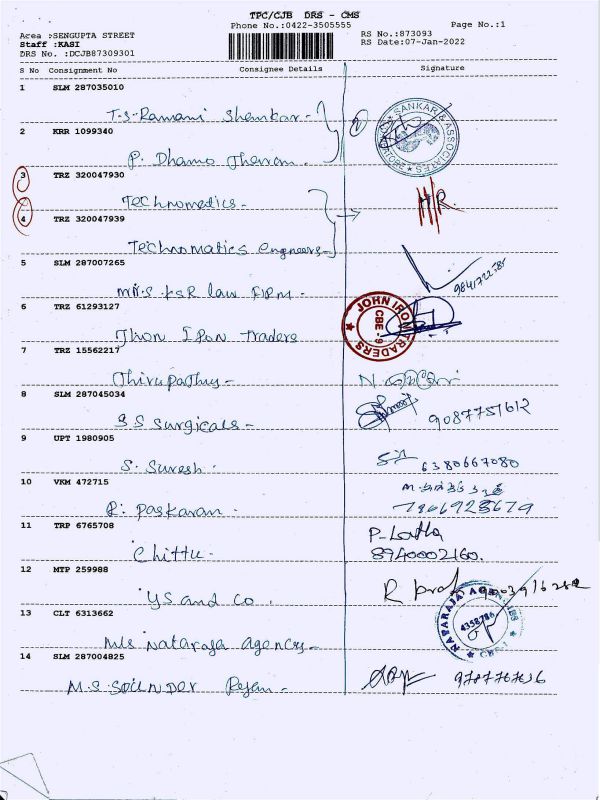 TPC/CJB DRS - CMS
Phone No.:0422-3505555 Page No.:1
Area :SENGUPTA STREET RS No.:873093
Staff :KASI RS Date:07-Jan-2022
DRS No. :DCJB87309301
S No Consignment No Consignee Details Signature
1 SLM 287035010
T.S. Ramani Shankar -
SANKAR & ASSOCIATES
2 KRR 1099340
P. Dhamo Tharan
3 TRZ 320047930
Technomedics -
4 TRZ 320047939
Technomatics engineers -
5 SLM 287007265
M/s KSR law FIRM -
6 TRZ 61293127
JOHN IRON TRADERS
CBE - 9
Jhon IRon Traders
7 TRZ 15562217
Thirupathy -
8 SLM 287045034
S.S Surgicals - 9087751612
9 UPT 1980905
S. Suresh . 6380667080
10 VKM 472715
R. Paskaran -
11 TRP 6765708
P-Latha
Chittu - 8940002160.
12 MTP 259988
ys and co .
13 CLT 6313662
4358786
M/s Nataraja Agency -
14 SLM 287004825
M.S. Rajan -